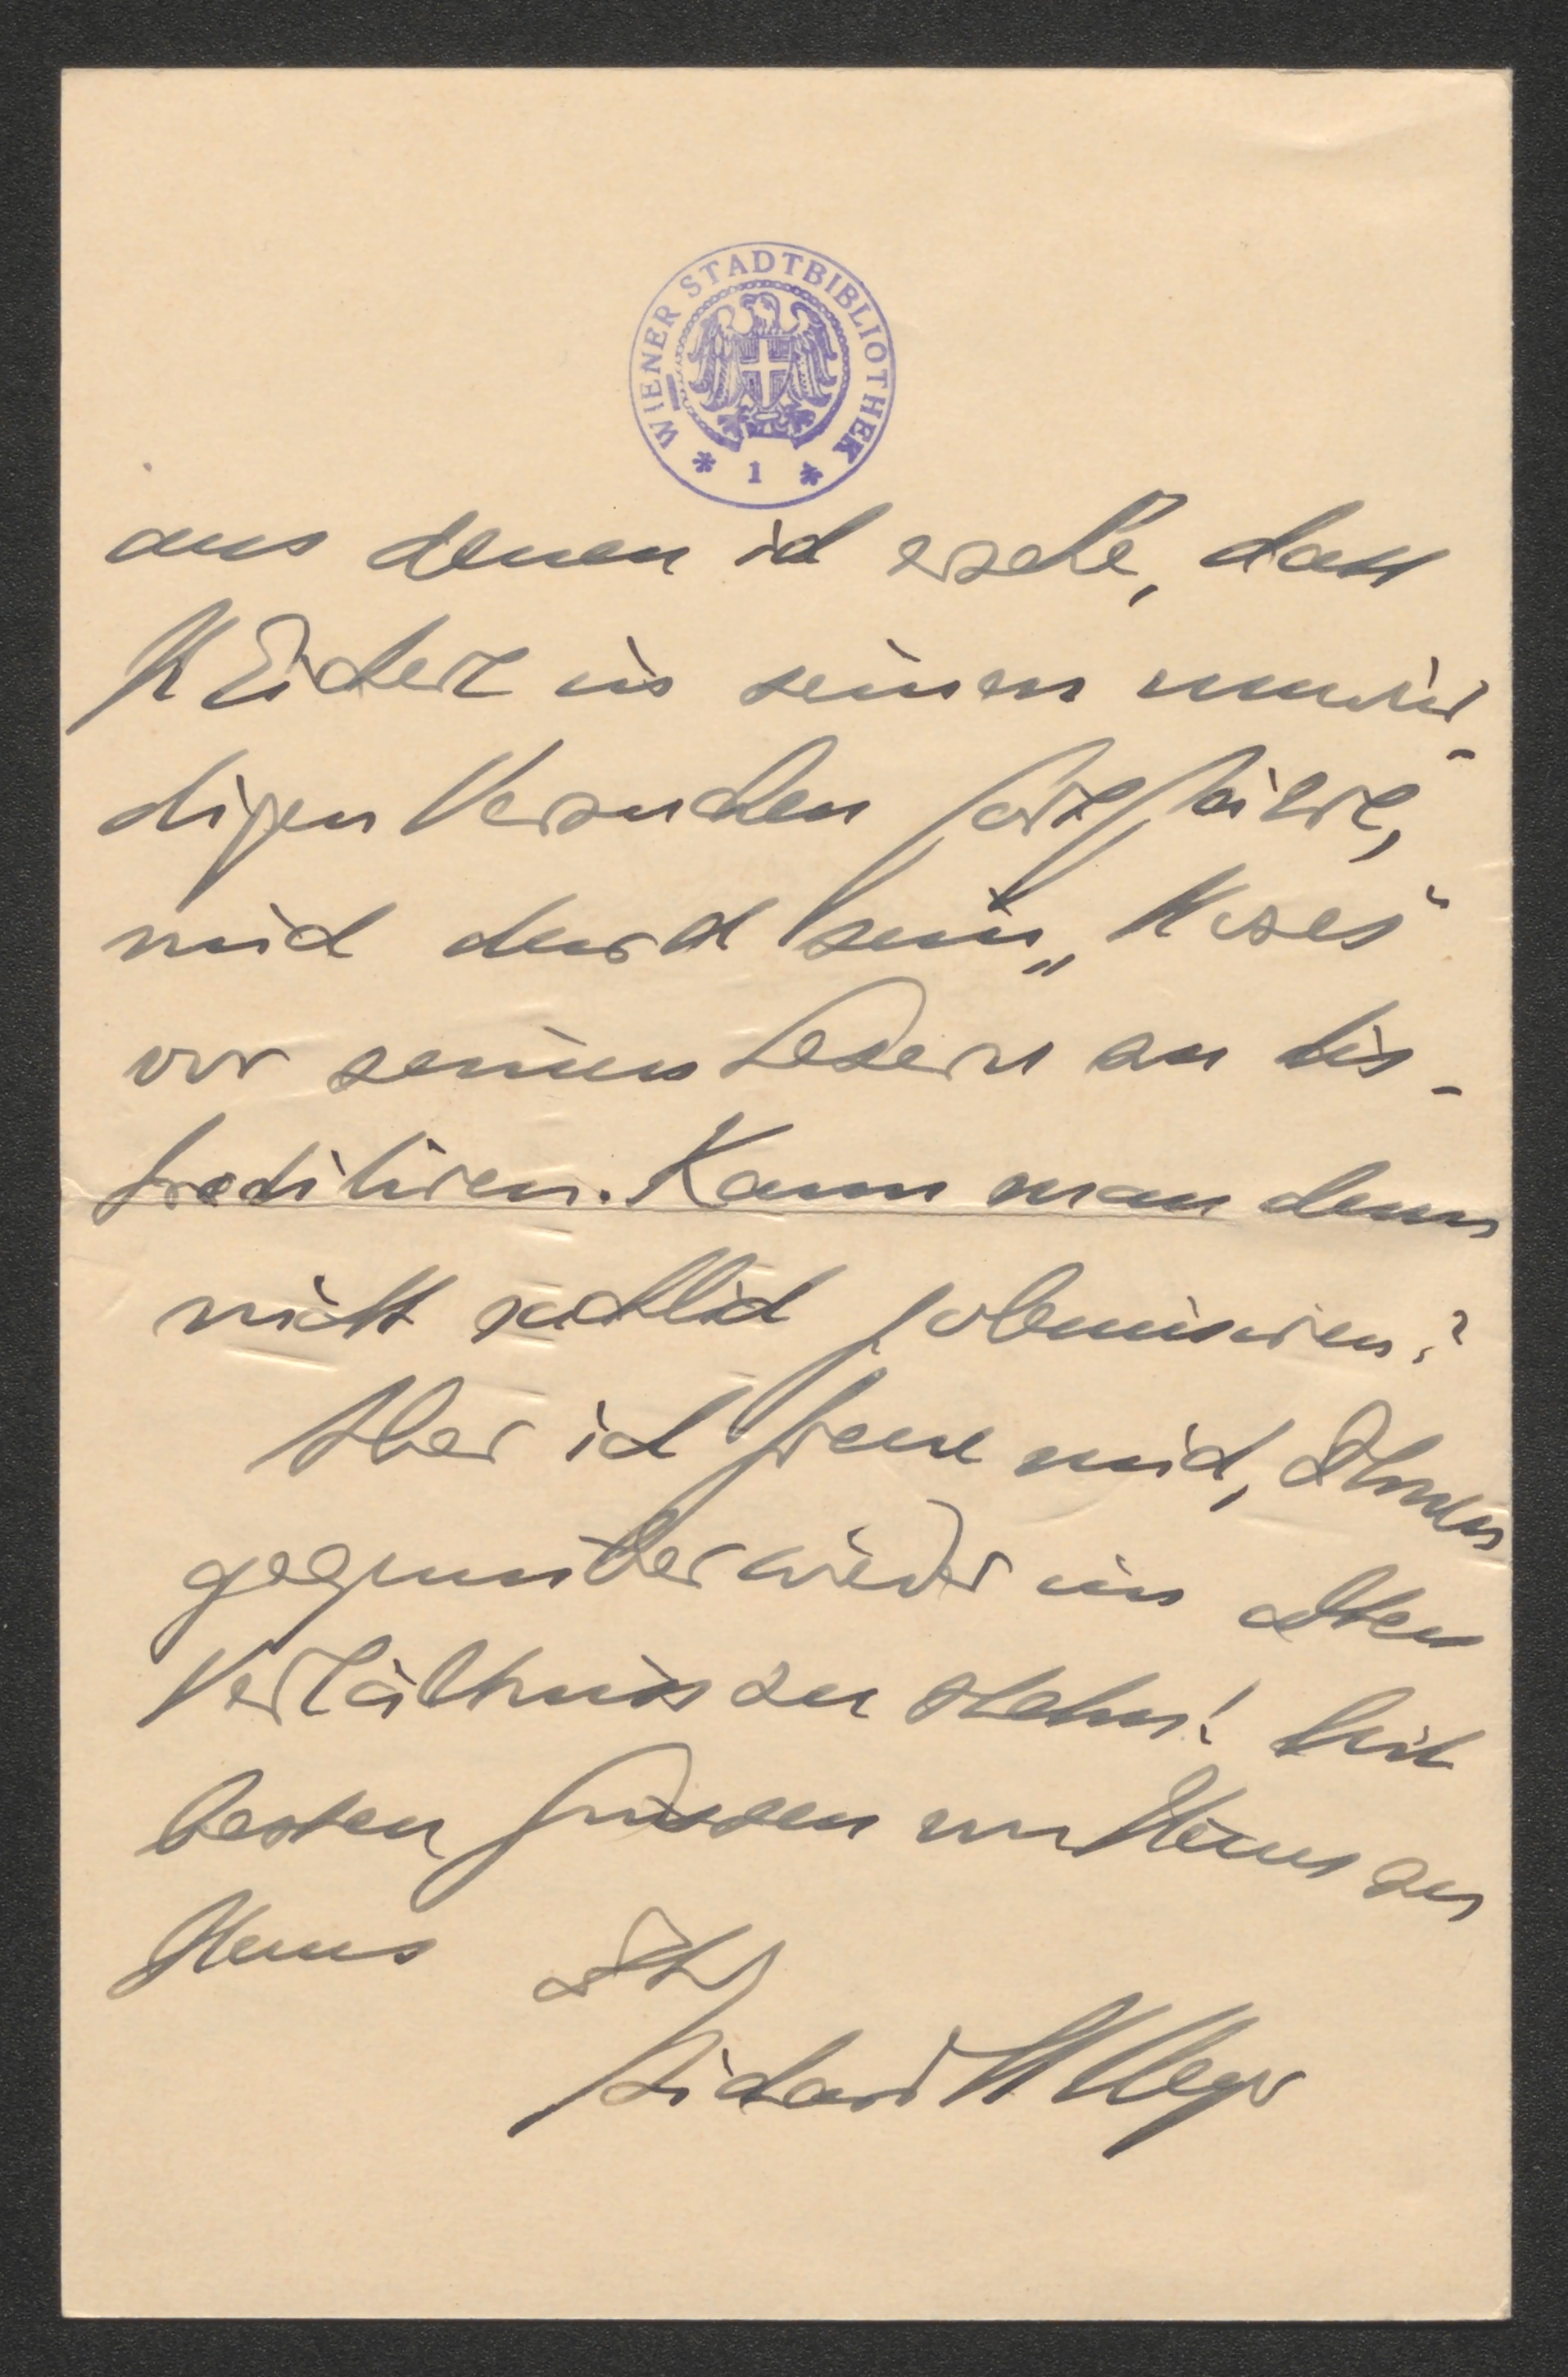 WIENER STADTBIBLIOTHEK * 1 *
aus denen ich ersehe, dass
in seinen unwür-
digen Versuchen fortfährt,
mich durch sein „Moses“
vor seinen Lesern zu dis-
kreditiren. Kann man denn
nicht sachlich polemisiren?
Aber ich freue mich, Ihnen
gegenüber wieder im alten
Verhältnis zu stehen! Mit
besten Grüssen von Haus zu
Haus Ihr
Richard M Meyer